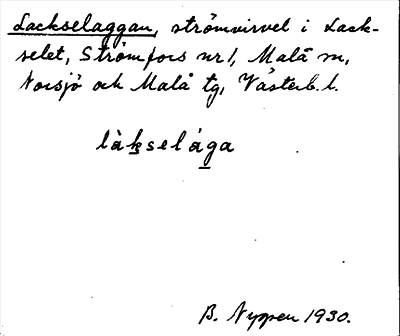 Lackselaggan, strömvirvel i Lack-
selet, Strömfors nr 1, Malå sn,
Norsjö och Malå tg, Västerb. l.
làkselága
B. Nyppen 1930.